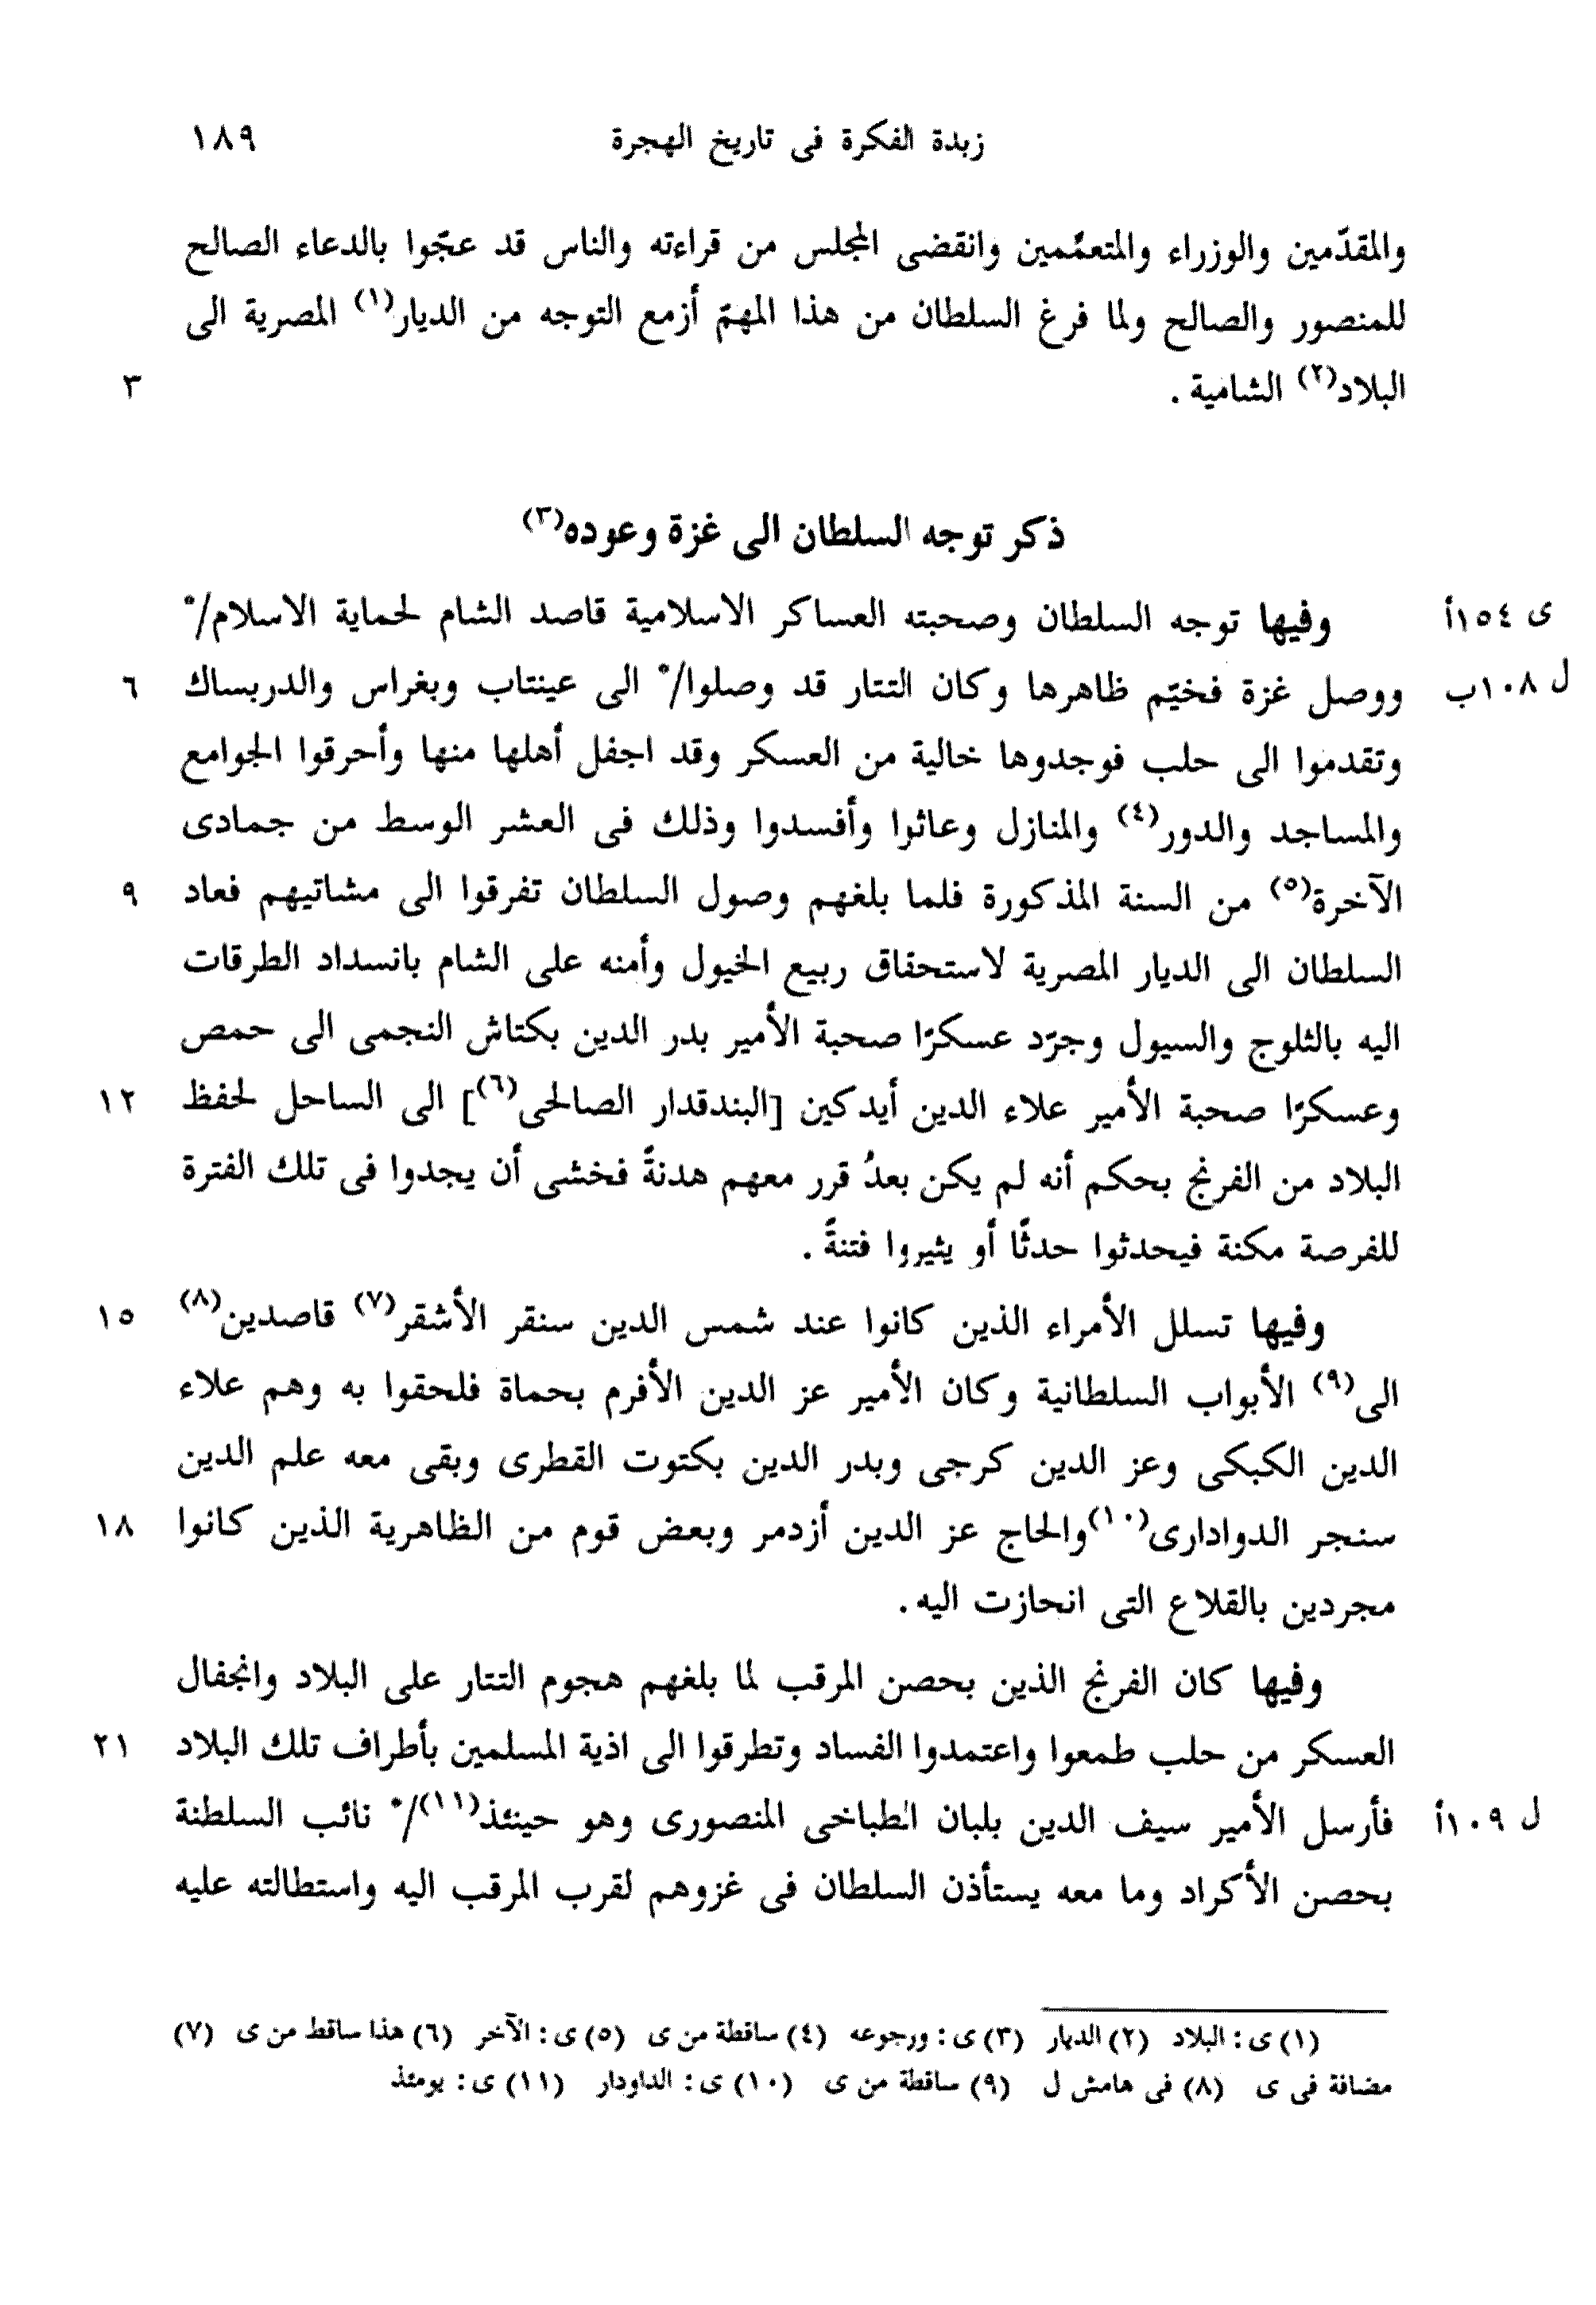 زبدة الفكرة فى تاريخ الهجرة ١٨٩
والمقدّمين والوزراء والمتعمّمين وانقضى المجلس من قراءته والناس قد عجّوا بالدعاء الصالح
للمنصور والصالح ولما فرغ السلطان من هذا المهمّ أزمع التوجه من الديار(١) المصرية الى
البلاد(٢) الشامية . ٣
ذكر توجه السلطان الى غزة وعوده(٣)
ى ١٥٤أ وفيها توجه السلطان وصحبته العساكر الاسلامية قاصد الشام لحماية الاسلام/*
ل ١٠٨ب ووصل غزة فخيّم ظاهرها وكان التتار قد وصلوا/* الى عينتاب وبغراس والدربساك ٦
وتقدموا الى حلب فوجدوها خالية من العسكر وقد اجفل أهلها منها وأحرقوا الجوامع
والمساجد والدور(٤) والمنازل وعاثوا وأفسدوا وذلك فى العشر الوسط من جمادى
الآخرة(٥) من السنة المذكورة فلما بلغهم وصول السلطان تفرقوا الى مشاتيهم فعاد ٩
السلطان الى الديار المصرية لاستحقاق ربيع الخيول وأمنه على الشام بانسداد الطرقات
اليه بالثلوج والسيول وجرّد عسكرًا صحبة الأمير بدر الدين بكتاش النجمى الى حمص
وعسكرًا صحبة الأمير علاء الدين أيدكين [البندقدار الصالحى(٦)] الى الساحل لحفظ ١٢
البلاد من الفرنج بحكم أنه لم يكن بعدُ قرر معهم هدنةً فخشى أن يجدوا فى تلك الفترة
للفرصة مكنة فيحدثوا حدثًا أو يثيروا فتنةً .
وفيها تسلل الأمراء الذين كانوا عند شمس الدين سنقر الأشقر(٧) قاصدين(٨) ١٥
الى(٩) الأبواب السلطانية وكان الأمير عز الدين الأفرم بحماة فلحقوا به وهم علاء
الدين الكبكى وعز الدين كرجى وبدر الدين بكتوت القطرى وبقى معه علم الدين
سنجر الدوادارى(١٠) والحاج عز الدين أزدمر وبعض قوم من الظاهرية الذين كانوا ١٨
مجردين بالقلاع التى انحازت اليه .
وفيها كان الفرنج الذين بحصن المرقب لما بلغهم هجوم التتار على البلاد وانجفال
العسكر من حلب طمعوا واعتمدوا الفساد وتطرقوا الى اذية المسلمين بأطراف تلك البلاد ٢١
ل ١٠٩أ فأرسل الأمير سيف الدين بلبان الطباخى المنصورى وهو حينئذ(١١)/* نائب السلطنة
بحصن الأكراد وما معه يستأذن السلطان فى غزوهم لقرب المرقب اليه واستطالته عليه
(١) ى : البلاد (٢) الديار (٣) ى : ورجوعه (٤) ساقطة من ى (٥) ى : الآخر (٦) هذا ساقط من ى (٧)
مضافة فى ى (٨) فى هامش ل (٩) ساقطة من ى (١٠) ى : الداودار (١١) ى : يومئذ